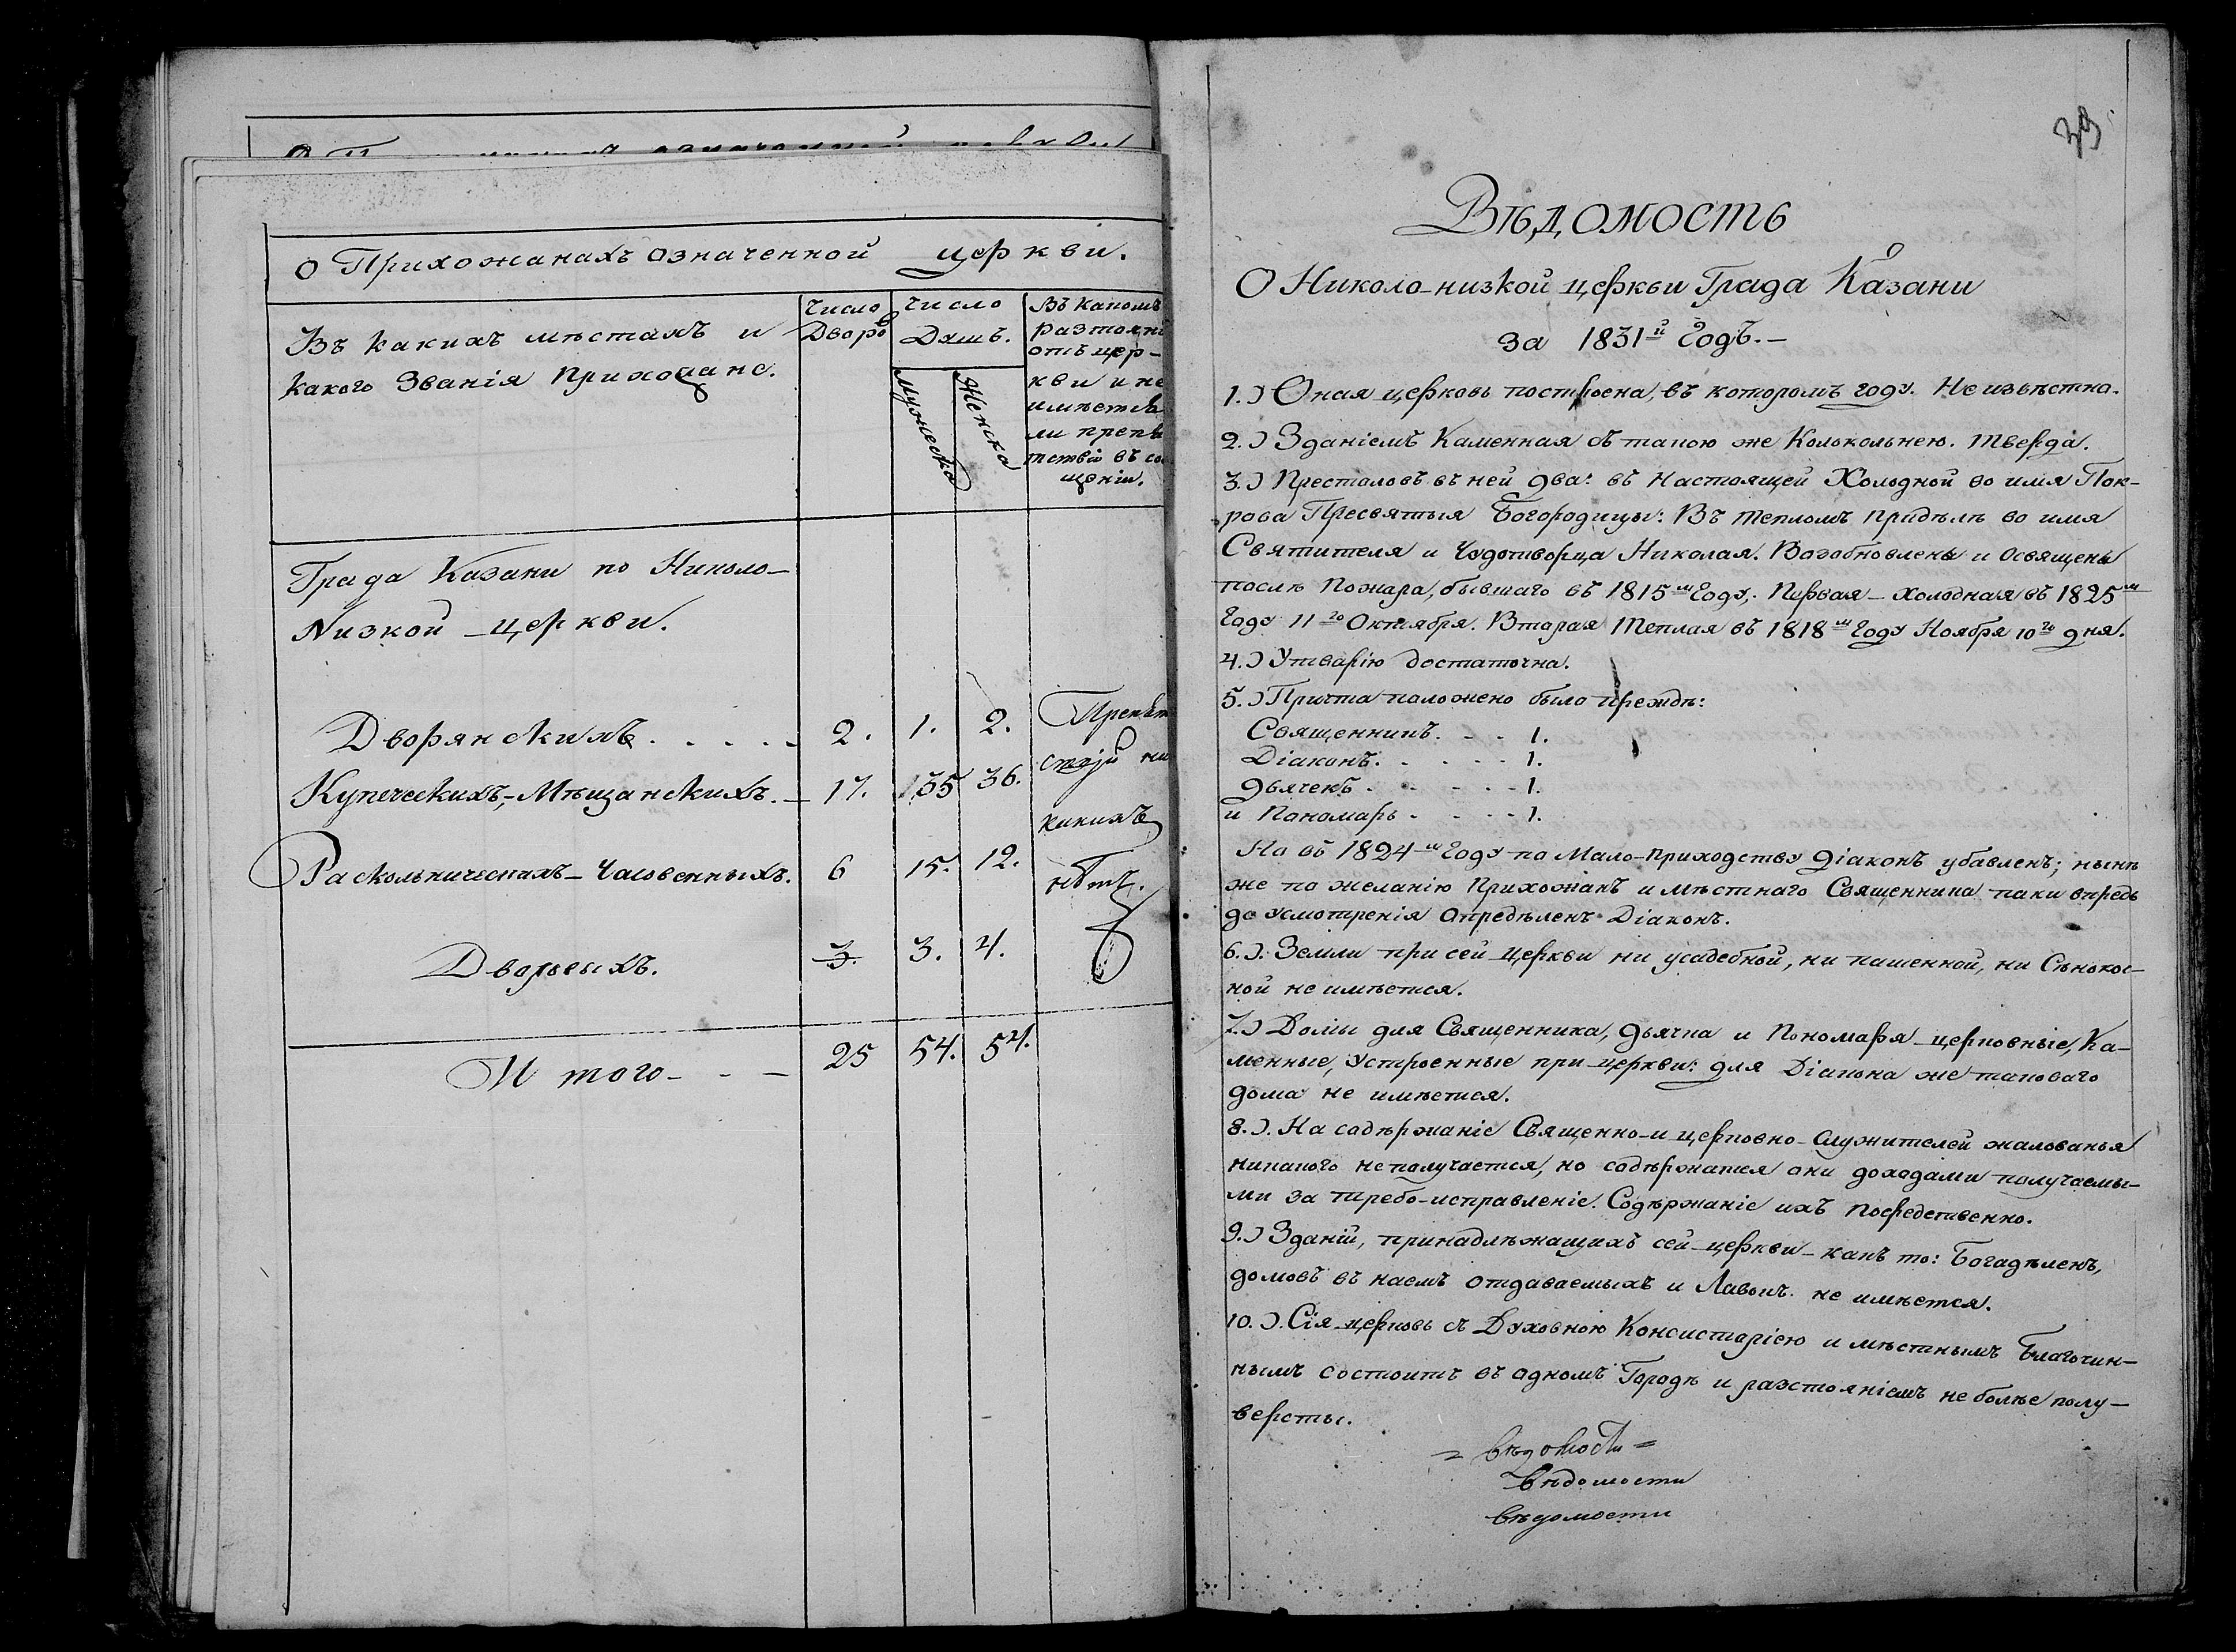 О Прихожанахъ означенной церкви.
Въ какихъ мѣстахъ и
какого званія прихожане.
Число
Дворовъ
Число
Душъ.
Мужеска
Женска
Въ какомъ
разтояні
отъ цер-
кви и не
имѣется
ли препя
тствій въ соо
щеніи.
Града Казани по Николо-
Низкой церкви.
Дворянскихъ. . . . . 2. 1. 2.
Купеческихъ,-Мѣщанскихъ. - 17. 35 36.
Раскольническихъ-Часовенныхъ. 6 15. 12.
Дворовыхъ. 3. 3. 4.
Препят
ствій ни
какихъ
нѣтъ.
И того - - - 25 54. 54.
39.
Вѣдомость
О Николо-низкой церкви Града Казани
за 1831й Годъ.-
1.) Оная церковь построена, въ которомъ году. Не извѣстно.
2.) Зданіемъ Каменная съ такою же Колокольнею. тверда.
3.) Престоловъ въ ней два: въ Настоящей Холодной во имя Пок-
рова Пресвятыя Богородицы: Въ тепломъ придѣлѣ во имя
Святителя и Чудотворца Николая. Возобновлены и освящены
послѣ Пожара, бывшаго въ 1815м Году,: Первая - холодная въ 1825м
Году 11го Октября. Вторая Теплая въ 1818м Году Ноября 10го дня.
4.) Утварію достаточна.
5.) Причта положено было прежде:
Священникъ. - - 1.
Діаконъ. - - - - 1.
дьячекъ - - - - - 1.
и Пономарь - - - - 1.
Но въ 1824м Году по Мало-приходству діаконъ убавленъ; нынѣ
же по желанію Прихожанъ и мѣстнаго Священника паки впредь
до усмотренія опредѣленъ Діаконъ.
6.). Земли при сей церкви ни усадебной, ни пашенной, ни Сѣнокос-
ной не имѣется.
7.) Домы для Священника, дьячка и Пономаря - церковные, Ка-
менные, устроенные при церкви: для Діакона же таковаго
дома не имѣется.
8.). На содѣржаніе Священно-и церковно-служителей жалованья
никакого не получается, но содѣржатся они доходами получаемы-
ми за требо-исправленіе. Содѣржаніе ихъ посредственно.
9.) Зданій, принадлѣжащихъ сей церкви - какъ то: Богадѣленъ,
домовъ въ наемъ отдаваемыхъ и Лавокъ не имѣется.
10.). Сія церковь съ Духовною Консисторіею и мѣстнымъ Благочин-
нымъ состоитъ въ одномъ Городѣ и разстояніемъ не болѣе полу-
версты.
= вѣдомости =
вѣдомости
вѣдомости